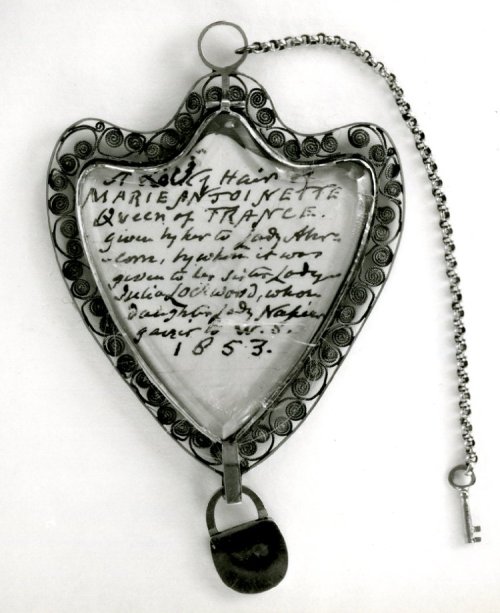 A Lock of Hair of
MARIE ANTOINETTE
Queen of FRANCE.
given by her to Lady Aber-
-corn, by whom it was
given to her Sister Lady
Julia Lockwood, whose
daughter Lady Napier
gave it to W. S.
1853.